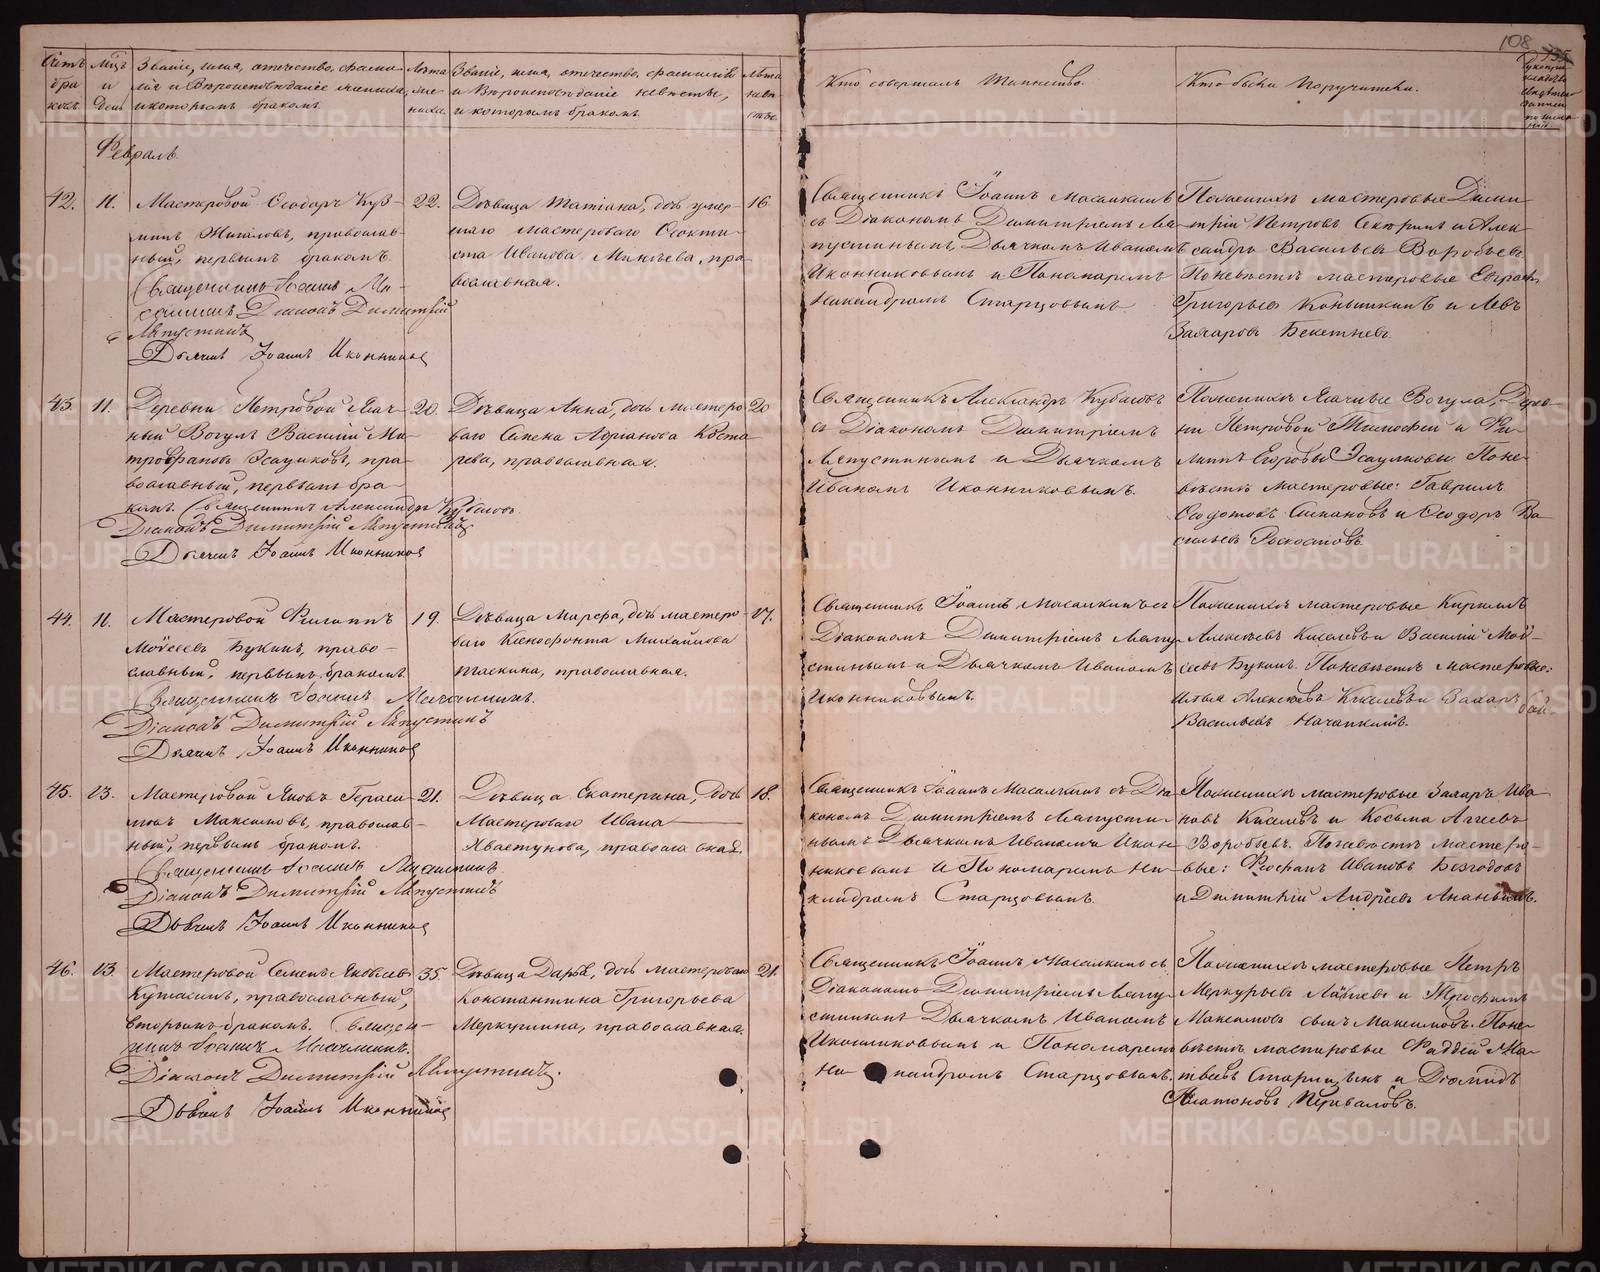 108
Счетъ браковъ.
Мѣсяцъ и день
Званіе, имя, отечество, фами-
лія и Вѣроисповѣданіе жениха,
и которымъ бракомъ.
Лѣта жениха.
Званіе, имя, отечество, фамилія
и Вѣроисповѣданіе невѣсты,
и которымъ бракомъ.
Лѣта невѣсты.
Кто совершалъ Таинство.
Кто были поручители.
Февраль.
42.
11.
Мастеровой Ѳеодоръ Куз-
минъ Жигаловъ, православ-
ный, первымъ бракомъ.
Священникъ Іоаннъ
Діаконъ Димитрій
Ляпустинъ
Дьячекъ Іоаннъ Иконниковъ
22.
Дѣвица Татіана, дочь умер-
шаго мастероваго Ѳеокти-
ста Иванова Минѣева, пра-
вославная.
16
Священникъ Іоаннъ Масалкинъ
съ Діакономъ Димитріемъ Ля-
пустинымъ, Дьячкомъ Иваномъ
Иконниковымъ и Пономаремъ
Никандромъ Старцовымъ.
По женихѣ мастеровые Дими-
трій Петровъ и Алек-
сандръ Васильевъ Воробьевъ
По невѣстѣ мастеровые
Григорьевъ Конышкинъ и Левъ
Захаровъ Бекетневъ.
43.
11.
Деревни Петровой Ясач-
ный Вогулъ Василій Ми-
трофановъ Эсаулковъ, пра-
вославный, первымъ бра-
комъ. Священникъ Александръ Кубасовъ.
Діаконъ Димитрій Ляпустинъ
Дьячекъ Іоаннъ Иконниковъ
20.
Дѣвица Анна, дочь мастеро-
ваго Семена Адріанова Коста-
рева, православная.
20
Священникъ Александръ Кубасовъ
съ Діакономъ Димитріемъ
Ляпустинымъ и Дьячкомъ
Иваномъ Иконниковымъ.
По женихѣ Ясачные Вогула, Дерев-
ни Петровой Тимофей и Фи-
липпъ Егоровы Эсаулковы. По не-
вѣстѣ мастеровые: Гаврилъ
Ѳедотовъ Степановъ и Ѳеодоръ Ва-
сильевъ
44.
11.
Мастеровой Филиппъ
Моѵсеевъ Букинъ, право-
славный, первымъ бракомъ.
Священникъ Іоаннъ Масалкинъ.
Діаконъ Димитрій Ляпустинъ
Дьячекъ Іоаннъ Иконниковъ
19.
Дѣвица Марфа, дочь мастеро-
ваго Ксенофонта Михайлова
Таскина, православная.
17.
Священникъ Іоаннъ Масалкинъ съ
Діакономъ Димитріемъ Ляпу-
стинымъ и Дьячкомъ Иваномъ
Иконниковымъ.
По женихѣ мастеровые Кириллъ
Алексѣевъ Киселевъ и Василій Мой-
сеевъ Букинъ. По невѣстѣ мастеровые:
Илья Алексѣевъ Киселевъ и Захаръ
Васильевъ Начапкинъ.
45.
13.
Мастеровой Яковъ Гераси-
мовъ Максимовъ, православ-
ный, первымъ бракомъ.
Священникъ Іоаннъ Масалкинъ.
Діаконъ Димитрій Ляпустинъ
Дьячекъ Іоаннъ Иконниковъ
21.
Дѣвица Екатерина, дочь
Мастероваго Ивана
Хвастунова, православная.
18.
Священникъ Іоаннъ Масалкинъ съ Діа-
кономъ Димитріемъ Ляпусти-
нымъ Дьячкомъ Иваномъ Икон-
никовымъ и Пономаремъ Ни-
кандромъ Старцовымъ.
По женихѣ мастеровые Захаръ Ива-
новъ Киселевъ и Косьма Аггеевъ
Воробьевъ. По невѣстѣ мастеро-
вые: Ивановъ Безгодовъ
и Димитрій Андреевъ Ананьинъ.
46.
13
Мастеровой Семенъ Яковлевъ
Кутасинъ, православный,
вторымъ бракомъ. Священ-
никъ Іоаннъ Масалкинъ.
Діаконъ Димитрій Ляпустинъ.
Дьячекъ Іоаннъ Иконниковъ
35.
Дѣвица Дарья, дочь мастероваго
Константина Григорьева
Меркушина, православная.
21.
Священникъ Іоаннъ Масалкинъ съ
Діакономъ Димитріемъ Ляпу-
стинымъ Дьячкомъ Иваномъ
Иконниковымъ и Пономаремъ
Никандромъ Старцовымъ.
По женихѣ мастеровые Петръ
Меркурьевъ и Трофимъ
Максимовъ сынъ Максимовъ. По не-
вѣстѣ мастеровые Фаддей Ма-
твеевъ Старицынъ и Діомидъ
Платоновъ Переваловъ.
METRIKI.GASO-URAL.RU